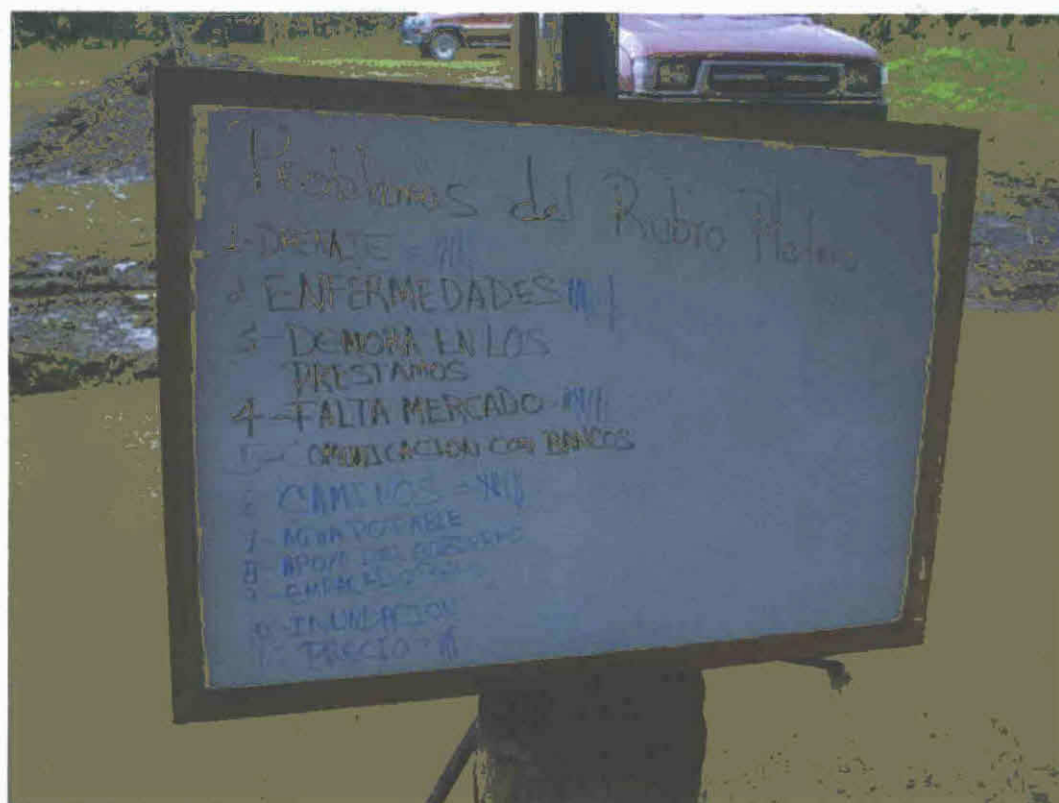 Problemas del Rubro Platano
1-DRENAJE =
2 ENFERMEDADES
3-DEMORA EN LOS
PRESTAMOS
4-FALTA MERCADO-
5-COMUNICACION CON BANCOS
6 CAMINOS =
7-AGUA POTABLE
8-APOYO DEL GOBIERNO
9-EMPACADO
-INUNDACION
-PRECIO-